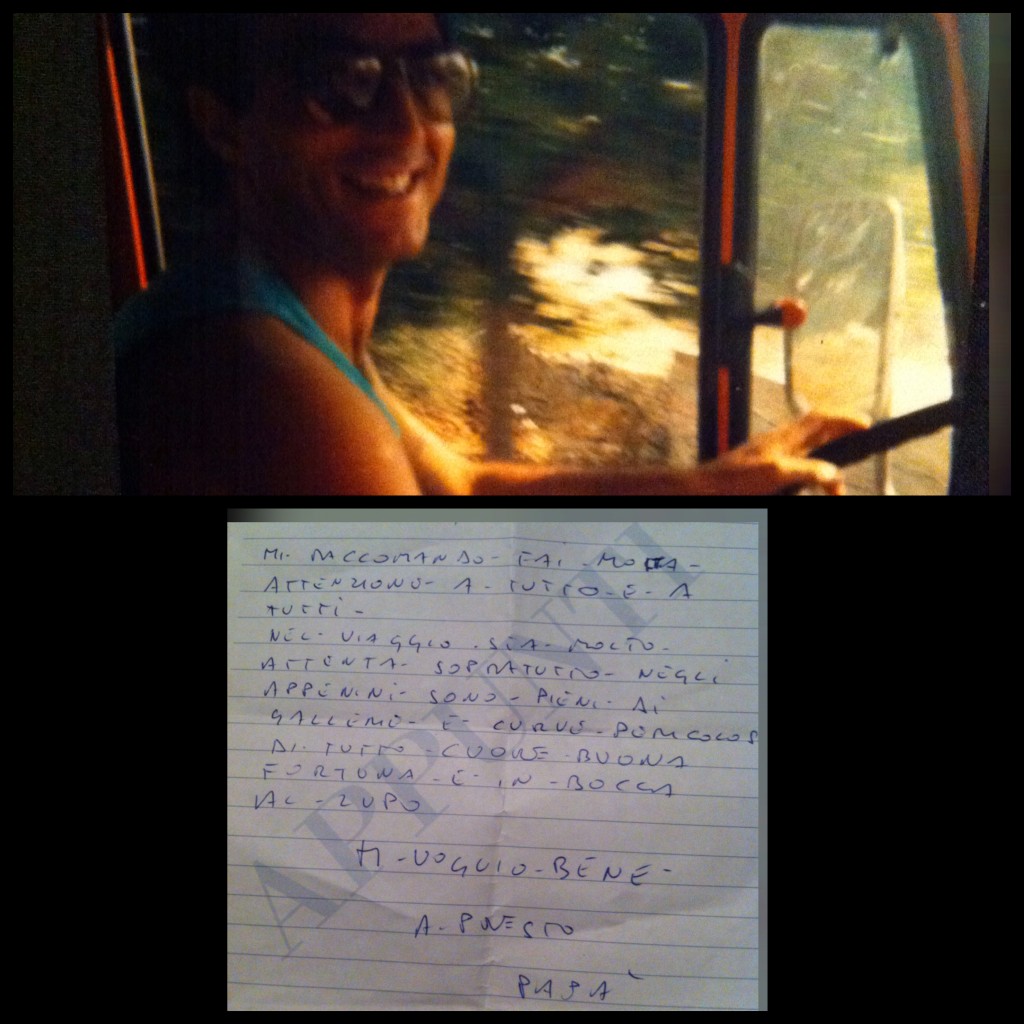 MI- RACCOMANDO- FAI -MOTA-
ATTENZIONE- A - TUTTO-E- A
TUTTI-
NEL- VIAGGIO. SIA- MOLTO-
ATTENTA- SOPRATUTTO- NEGLI
APPENINI- SONO- PIENI- DI
GALLEME- E- CURVE- PERICOLOS
DI- TUTTO-CUORE-BUONA
FORTUNA-E- IN-BOCCA
AL-LUPO
TI-VOGLIO-BENE-
A-PRESTO
PAPÀ
APPUNTI